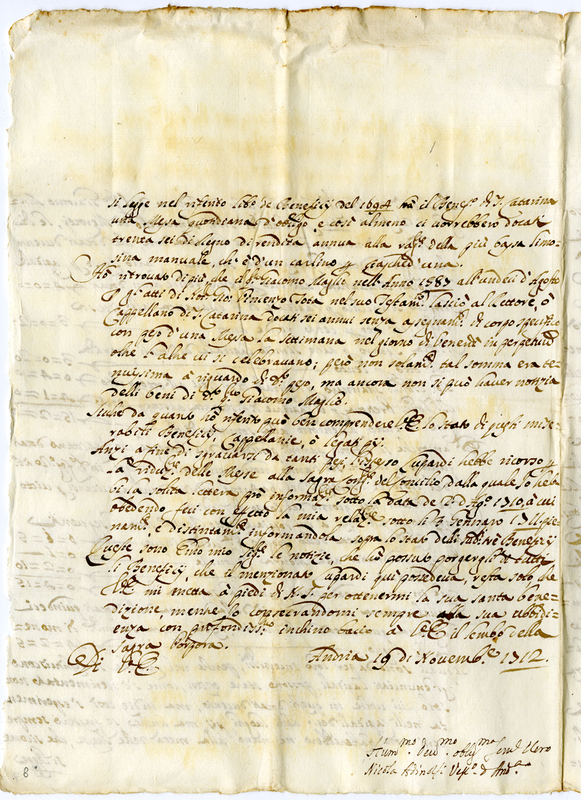 Si legge nel riferito lib.º de Beneficij del 1694 che il Benef.º di S. Catarina
una Messa quotidiana d'obligo, e così almeno ci vorrebbero docati
trenta sei di Regno di rendita annua alla rag.e della più bassa limo-
sina manuale, ch'è d'un carlino p ciascheduna.
Hò ritrovato di più, che il Sr Giacomo Maglio nell'Anno 1587 all'undeci d'Agosto
p gl'atti di Not. Gio: Vincenzo Tota nel suo Testam.to lasciò al Rettore, ò
Cappellano di S. Catarina docati sei annui senza assegnam.to di corpo specifico
con peso d'una Messa la settimana nel giorno di Venerdì in perpetuum
oltre l'altre che si celebravano; però non solam.te tal somma era te-
nuissima à riguardo di d.º peso, ma ancora non si può haver notizia
delli beni di d.º Giacomo Maglio.
Siche da quanto hò riferito può ben comprendere V.E. lo stato di questi mise-
rabili Beneficij, Cappellanie, ò legati pij.
Anzi a fine di sgravarsi da tanti pesi, l'istesso Lupardi hebbe ricorso p
la riduz.e delle Messe alla Sagra Cong.e del Concilio dalla quale io heb-
bi la solita lettera pro informat.e sotto la data de 2 d'Ag.º 1710 à cui
obedendo feci con effetto la mia relaz.e sotto li 3 Gennaro 1711 pie-
nam.te, e distintam.te informandola sopra lo stato delli sud.i Beneficij
Queste sono Em.º mio Sig.re le notizie, che hò possuto porgergli di tutti
li Beneficij, che il menzionato Lupardi quì possedeva, resta solo che
V.E. mi metta à piedi di N.S. per ottenermi la sua santa bene-
dizione, mentre io consecrandomi sempre alla sua ubbidi-
enza con profondiss.º inchino bacio à V.E. il lembo della
Sagra Porpora.
Di V.E. Andria 19 di Novemb.e 1712.
Hum.mo Dev.mo oblig.mo Ser.re vero
Nicola Vesc.º d'And.a
8